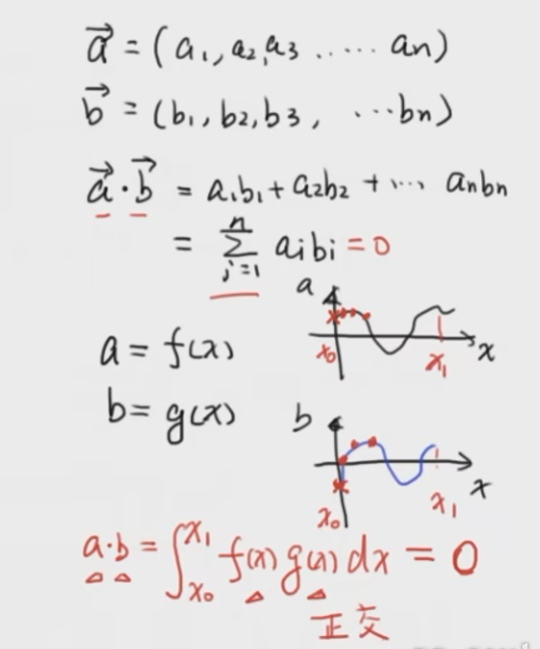 a⃗ = (a₁, a₂, a₃ ..... aₙ)
b⃗ = (b₁, b₂, b₃, ...bₙ)
a⃗·b⃗ = a₁b₁ + a₂b₂ + ... aₙbₙ
= ∑ᵢ₌₁ⁿ aᵢbᵢ = 0
a
x₀ x₁ x
a = f(x)
b = g(x)
b
x₀ x₁ x
a·b = ∫ₓ₀ˣ¹ f(x) g(x) dx = 0
正交